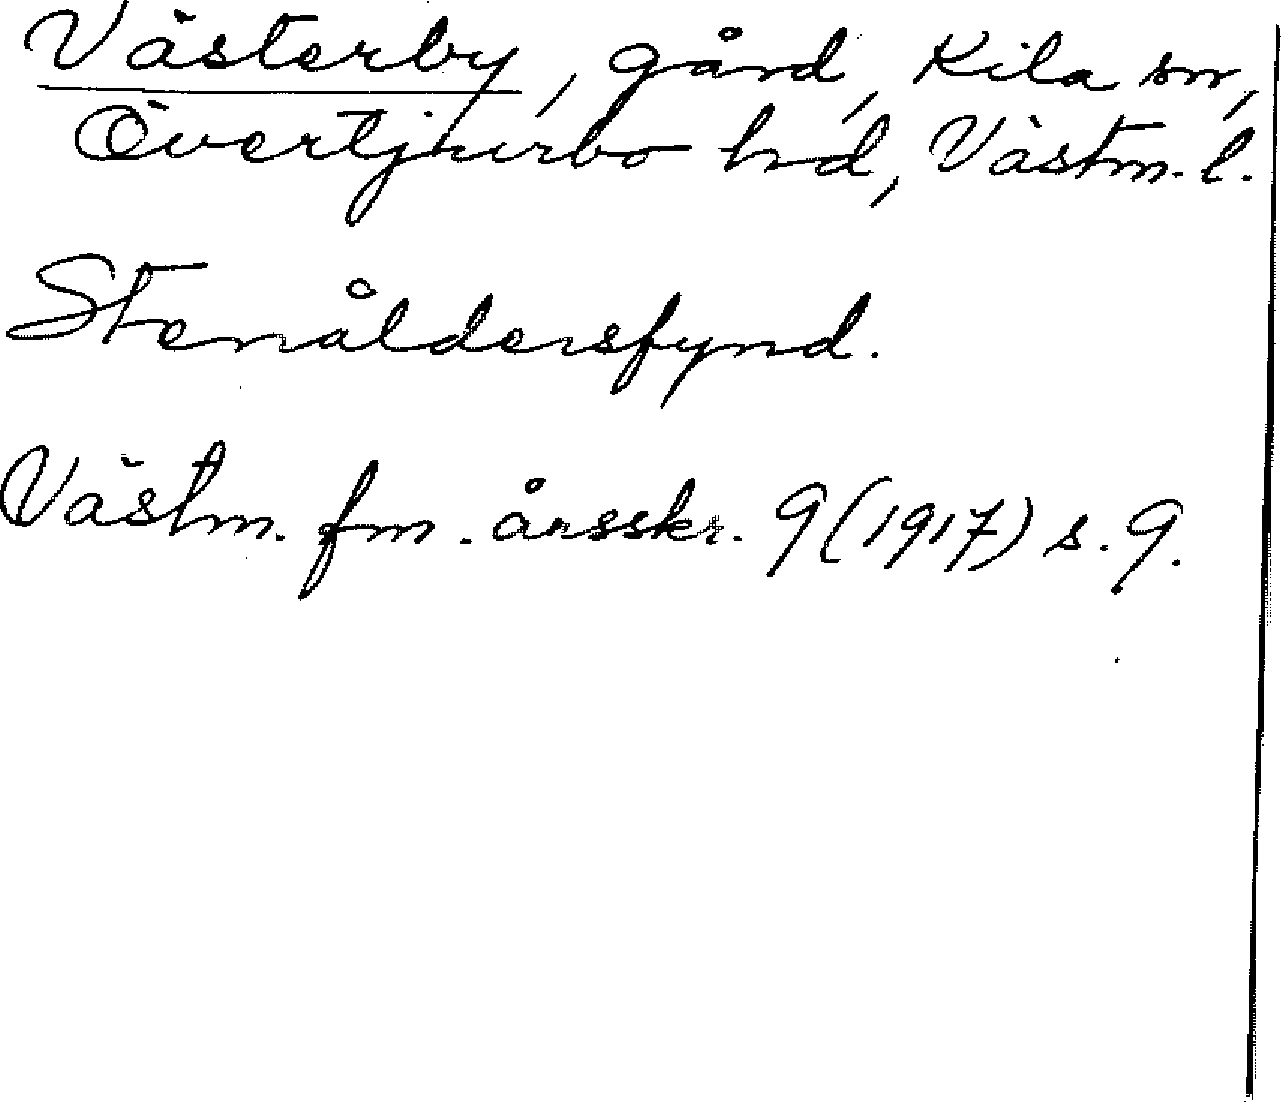 Västerby, gård, Kila sn,
Övertjurbo hd, Västm. l.
Stenåldersfynd.
Västm. fm. årsskr. 9 (1917) s. 9.